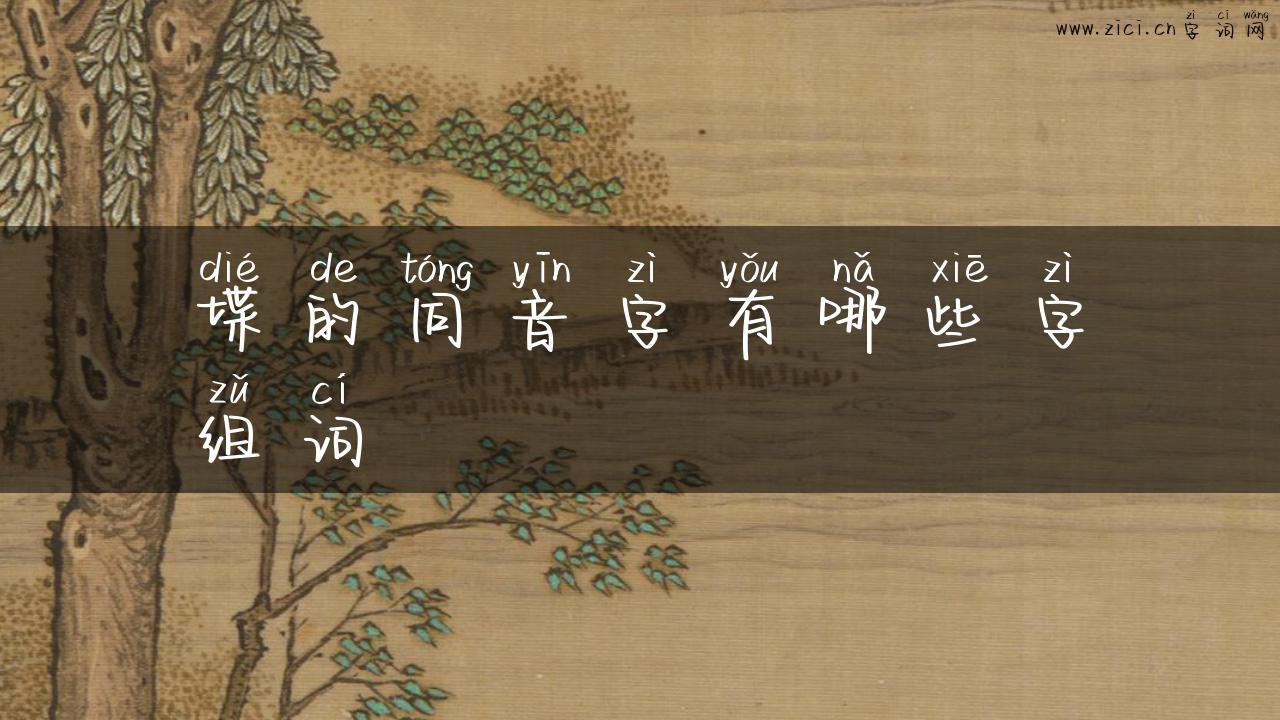 zì cí wǎng
www.zici.cn字词网
dié de tóng yīn zì yǒu nǎ xiē zì
堞的同音字有哪些字
zǔ cí
组词